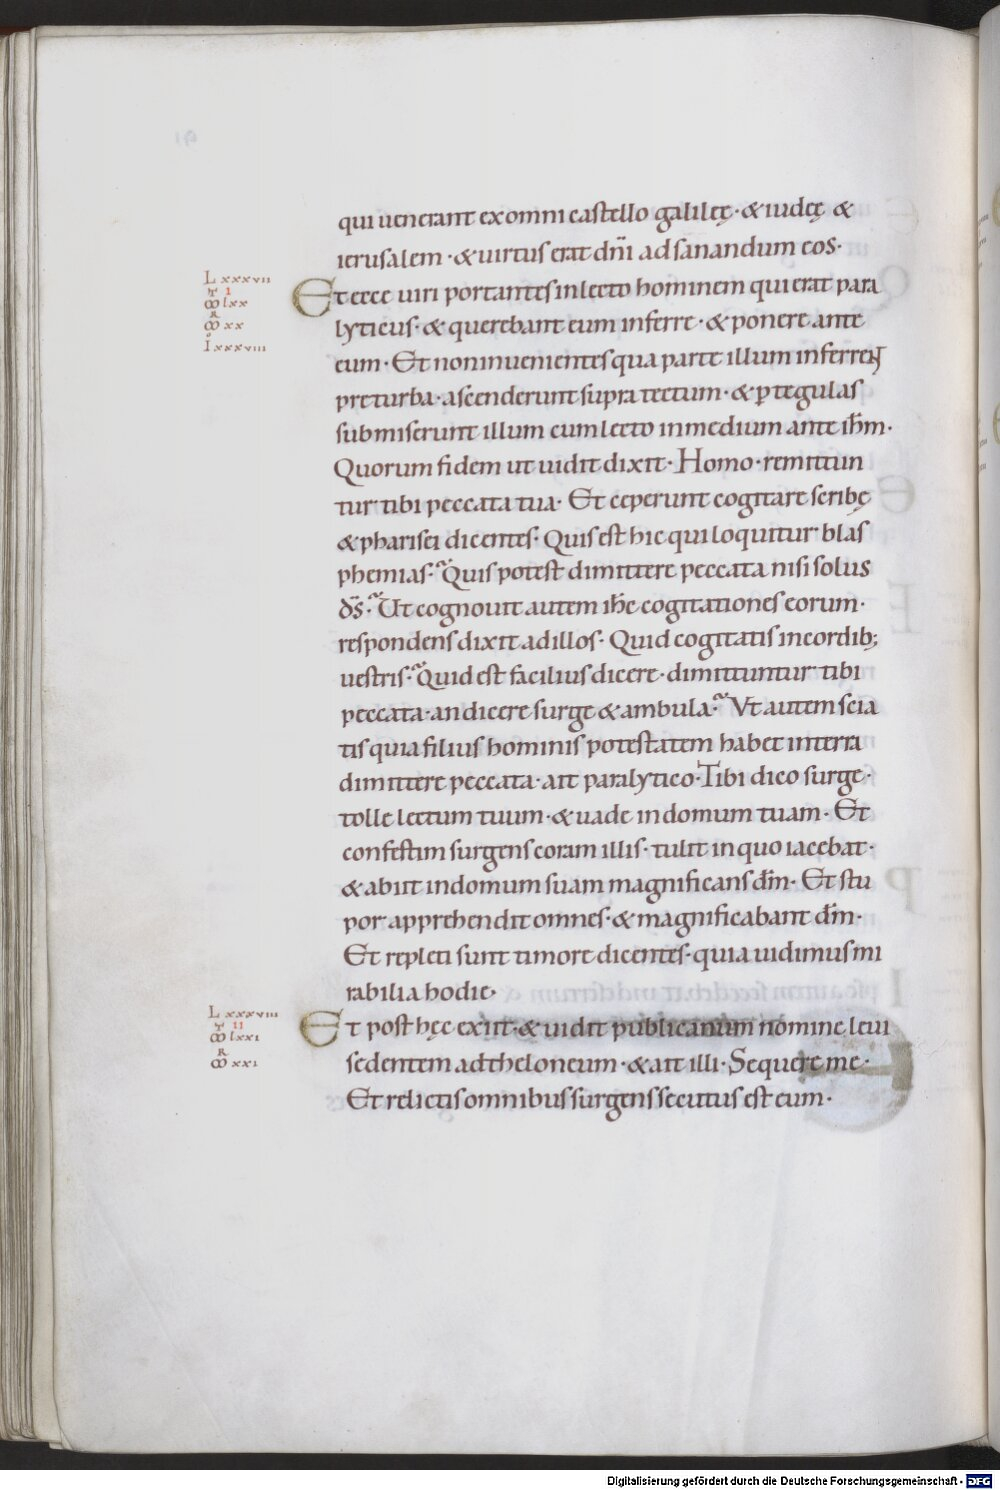 qui uenerant ex omni castello galileę · & iudeę &
ierusalem · & uirtus erat dn̄i ad sanandum eos ·
Lxxxvii
T I
M lxx
R
M xx
I xxxviii
Et ecce uiri portantes in lecto hominem qui erat para
lyticus · & querebant eum inferre · & ponere ante
eum · Et non inuenientes qua parte illum inferrent
pre turba · ascenderunt supra tectum · & p̱ tegulas
submiserunt illum cum lecto in medium ante ih̄m ·
Quorum fidem ut uidit dixit · Homo · remittun
tur tibi peccata tua · Et cęperunt cogitare scribę
& pharisei dicentes · Quis est hic qui loquitur blas
phemias · Quis potest dimittere peccata nisi solus
d̄s · Ut cognouit autem ih̄c cogitationes eorum ·
respondens dixit ad illos · Quid cogitatis in cordib;
uestris · Quid est facilius dicere · dimittuntur tibi
peccata · an dicere surge & ambula · Vt autem scia
tis quia filius hominis potestatem habet in terra
dimittere peccata · ait paralytico · Tibi dico surge ·
tolle lectum tuum · & uade in domum tuam · Et
confestim surgens coram illis · tulit in quo iacebat ·
& abiit in domum suam magnificans d̄m · Et stu
por apprehendit omnes · & magnificabant d̄m ·
Et repleti sunt timore dicentes · quia uidimus mi
rabilia hodie ·
Lxxxviii
T II
M lxxi
R
M xxi
Et post hęc exiit · & uidit publicanum nomine leui
sedentem ad theloneum · & ait illi · Sequere me ·
Et relictis omnibus surgens secutus est eum ·
Digitalisierung gefördert durch die Deutsche Forschungsgemeinschaft - DFG